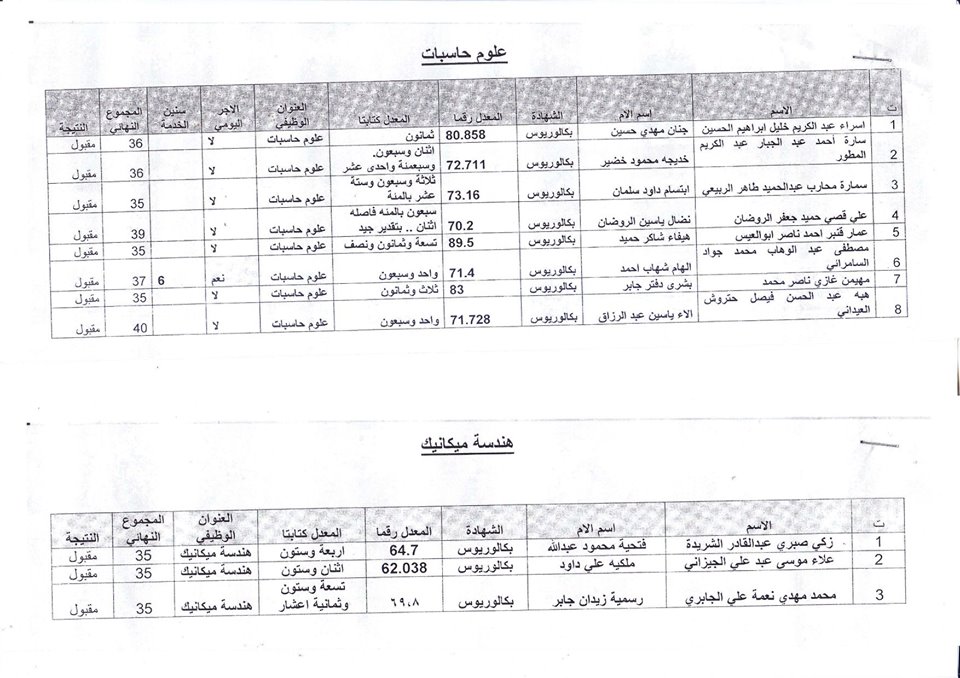 علوم حاسبات
ت الاسم اسم الام الشهادة المعدل رقما المعدل كتابتا العنوان الوظيفي الاجر اليومي سنين الخدمة المجموع النهائي النتيجة
1 اسراء عبد الكريم خليل ابراهيم الحسين جنان مهدي حسين بكالوريوس 80.858 ثمانون علوم حاسبات لا 36 مقبول
2 سارة أحمد عبد الجبار عبد الكريم المطور خديجه محمود خضير بكالوريوس 72.711 اثنان وسبعون. وسبعمئة واحدى عشر علوم حاسبات لا 36 مقبول
3 سمارة محارب عبدالحميد طاهر الربيعي ابتسام داود سلمان بكالوريوس 73.16 ثلاثة وسبعون وستة عشر بالمئة علوم حاسبات لا 35 مقبول
4 علي قصي حميد جعفر الروضان نضال ياسين الروضان بكالوريوس 70.2 سبعون بالمئه فاصله اثنان .. بتقدير جيد علوم حاسبات لا 39 مقبول
5 عمار قنبر احمد ناصر ابوالعيس هيفاء شاكر حميد بكالوريوس 89.5 تسعة وثمانون ونصف علوم حاسبات لا 35 مقبول
6 مصطفى عبد الوهاب محمد جواد السامرائي الهام شهاب احمد بكالوريوس 71.4 واحد وسبعون علوم حاسبات نعم 6 37 مقبول
7 مهيمن غازي ناصر محمد بشرى دفتر جابر بكالوريوس 83 ثلاث وثمانون علوم حاسبات لا 35 مقبول
8 هبه عبد الحسن فيصل حتروش العيداني الاء ياسين عبد الرزاق بكالوريوس 71.728 واحد وسبعون علوم حاسبات لا 40 مقبول
هندسة ميكانيك
ت الاسم اسم الام الشهادة المعدل رقما المعدل كتابتا العنوان الوظيفي المجموع النهائي النتيجة
1 زكي صبري عبدالقادر الشريدة فتحية محمود عبدالله بكالوريوس 64.7 اربعة وستون هندسة ميكانيك 35 مقبول
2 علاء موسى عبد علي الجيزاني ملكيه علي داود بكالوريوس 62.038 اثنان وستون هندسة ميكانيك 35 مقبول
3 محمد مهدي نعمة علي الجابري رسمية زيدان جابر بكالوريوس ٦٩،٨ تسعة وستون وثمانية اعشار هندسة ميكانيك 35 مقبول